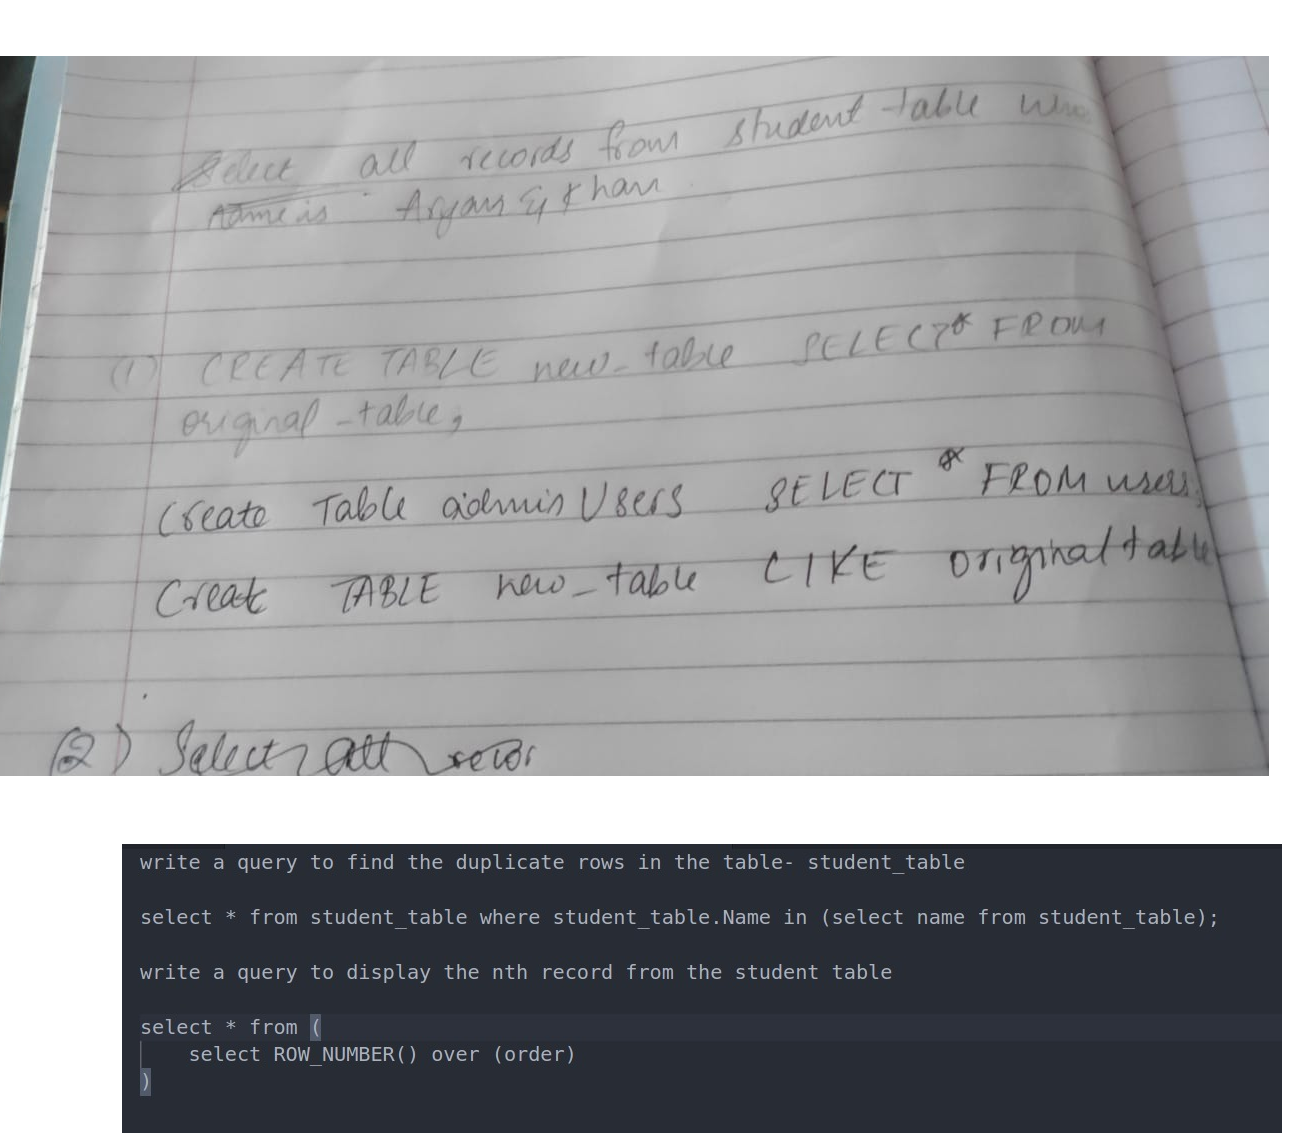 Select all records from student table
name is Aryan & Khan
(1) CREATE TABLE new_table SELECT * FROM
original_table;
Create Table adminUsers SELECT * FROM users;
Create TABLE new_table LIKE original table
(2) Select all recor
write a query to find the duplicate rows in the table- student_table
select * from student_table where student_table.Name in (select name from student_table);
write a query to display the nth record from the student table
select * from (
select ROW_NUMBER() over (order)
)